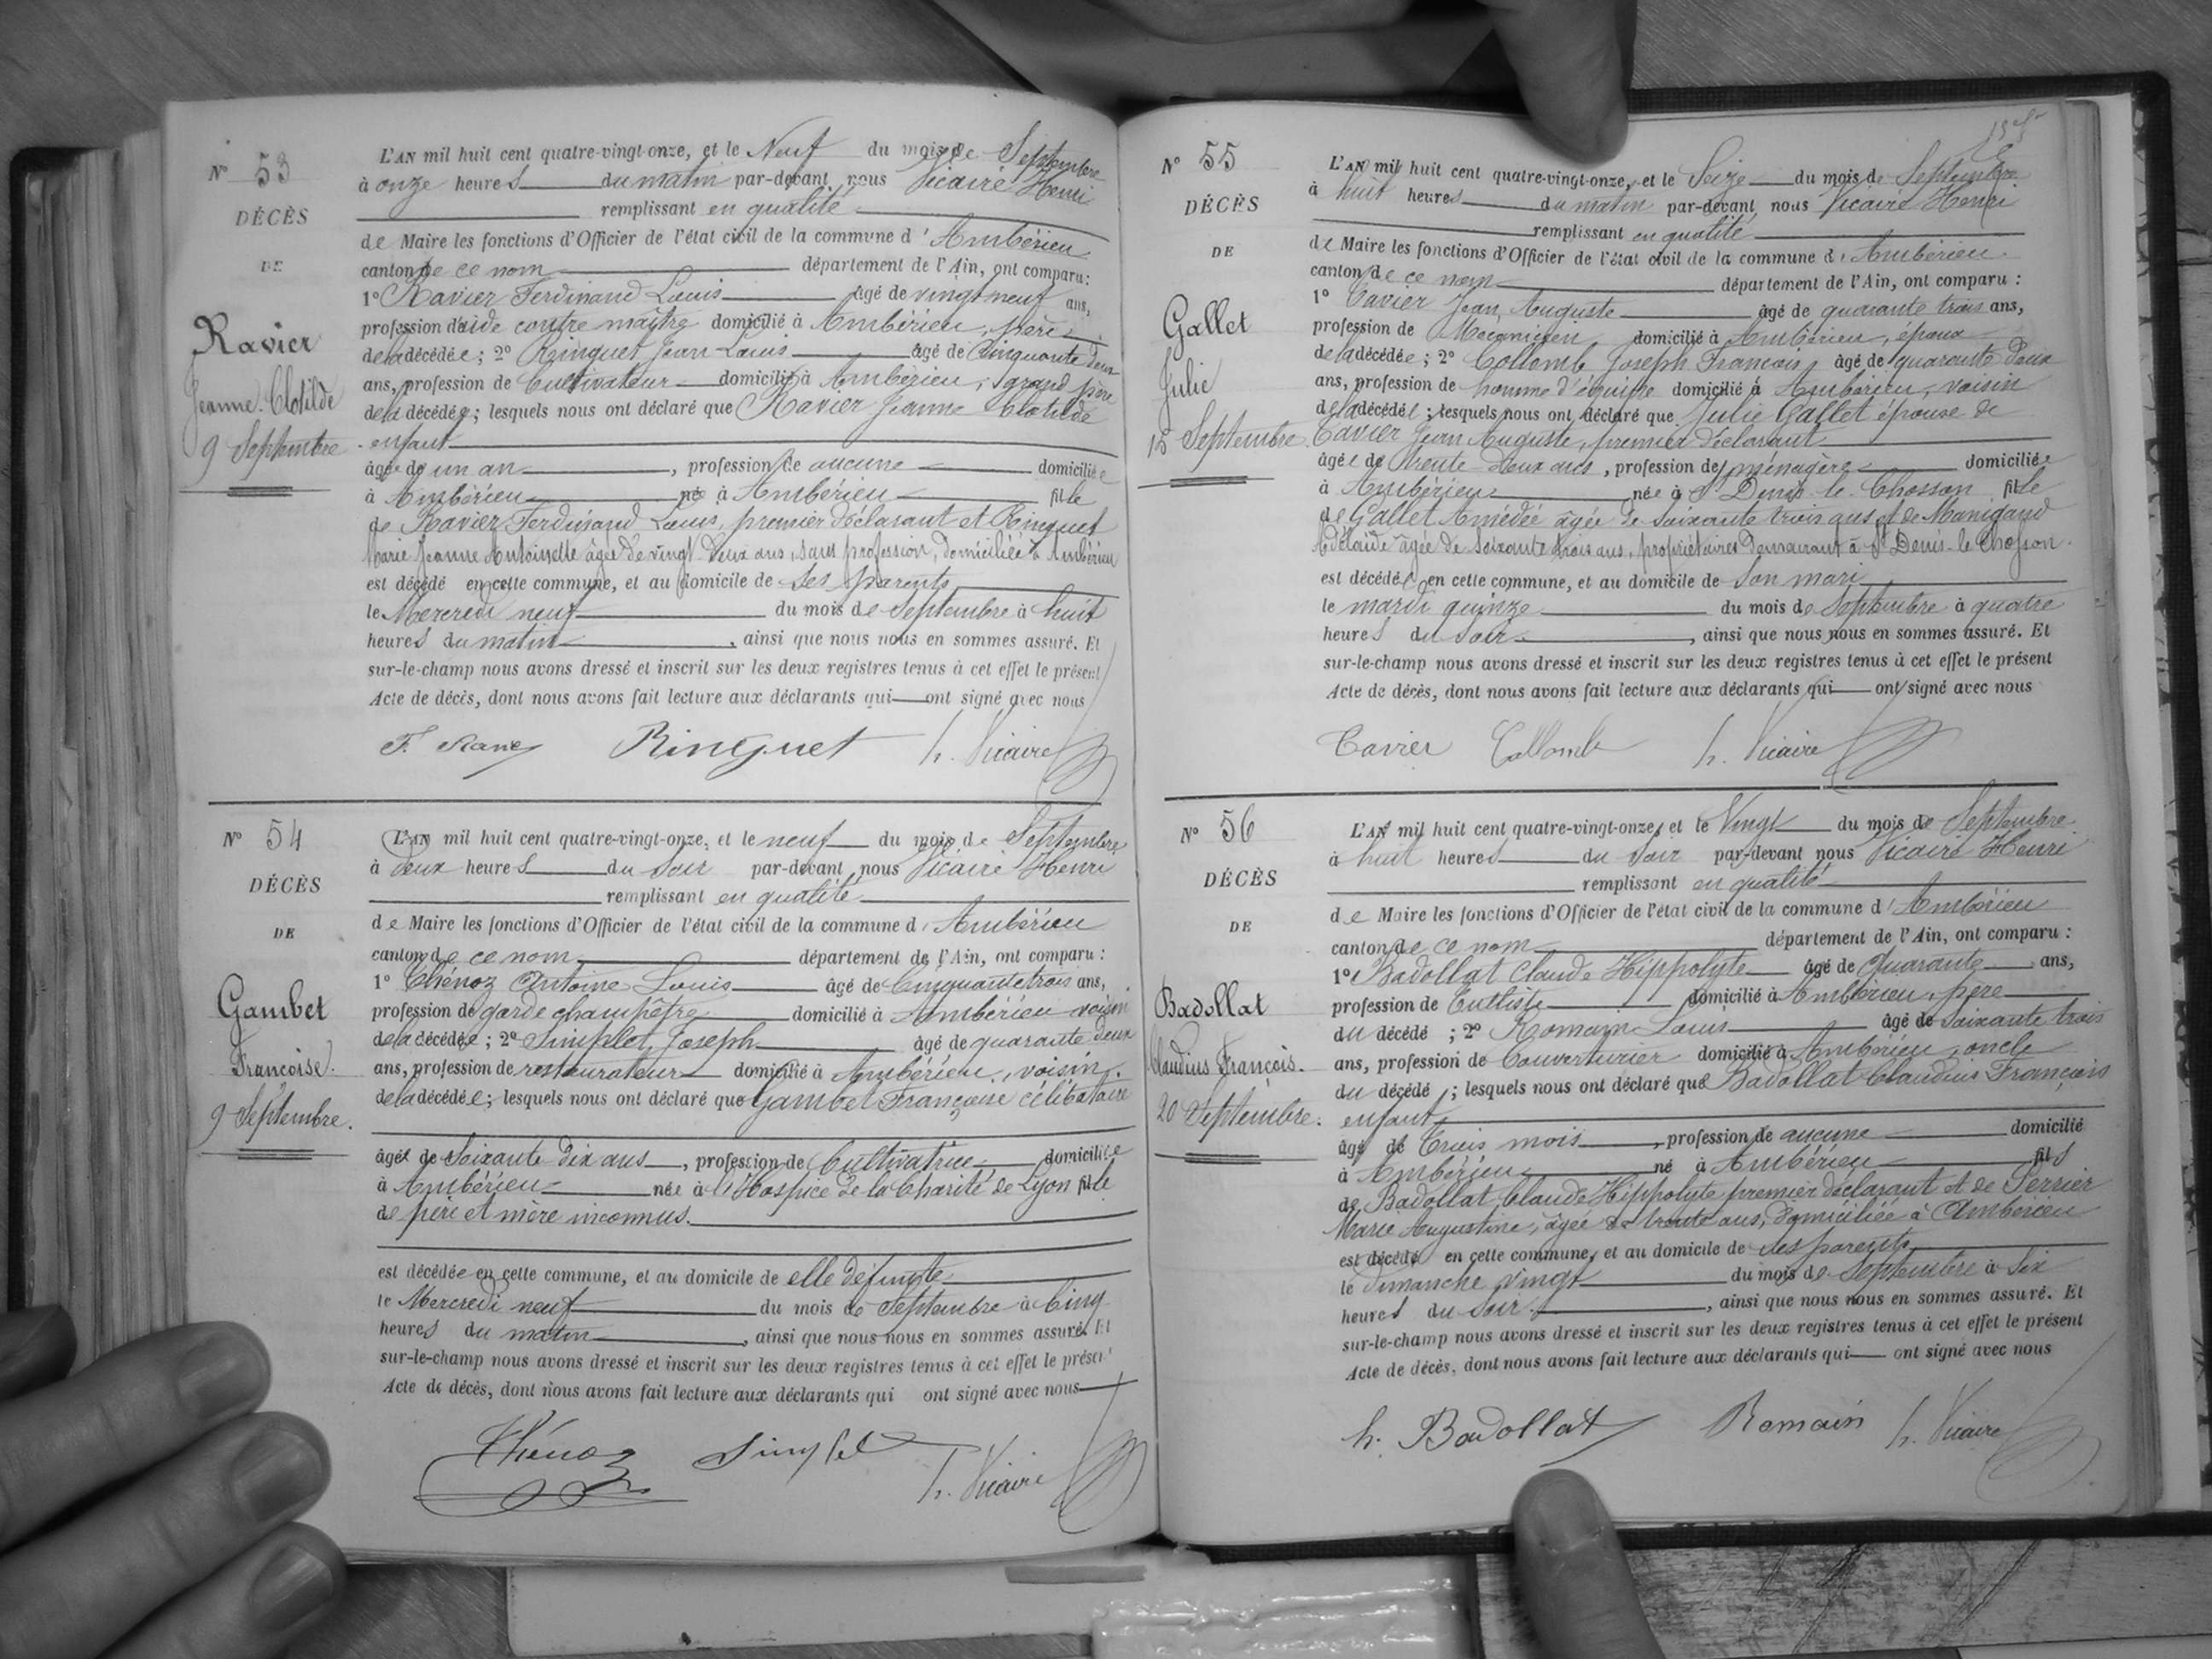 N° 53
DÉCÈS
DE
Ravier
Jeanne Clotilde
9 Septembre
L'AN mil huit cent quatre-vingt-onze, et le Neuf du mois de Septembre
à onze heures du matin par-devant nous Vicaire Henri
remplissant en qualité
de Maire les fonctions d'Officier de l'état civil de la commune d'Ambérieu
canton de ce nom département de l'Ain, ont comparu :
1° Ravier Ferdinand Louis âgé de vingt neuf ans,
profession d'aide contre maître domicilié à Ambérieu, père
de la décédée ; 2° Ringuet Jean Louis âgé de Cinquante deux
ans, profession de Cultivateur domicilié à Ambérieu, grand père
de la décédée ; lesquels nous ont déclaré que Ravier Jeanne Clotilde
enfant
âgée de un an, profession de aucune domiciliée
à Ambérieu née à Ambérieu fille
de Ravier Ferdinand Louis, premier déclarant et Ringuet
Marie Jeanne Antoinette âgée de vingt deux ans, sans profession, domiciliée à Ambérieu
est décédé en cette commune, et au domicile de ses parents
le Mercredi neuf du mois de Septembre à huit
heures du matin, ainsi que nous nous en sommes assuré. Et
sur-le-champ nous avons dressé et inscrit sur les deux registres tenus à cet effet le présent
Acte de décès, dont nous avons fait lecture aux déclarants qui ont signé avec nous
Ringuet h. Vicaire
N° 54
DÉCÈS
DE
Gambet
Françoise.
9 Septembre.
L'AN mil huit cent quatre-vingt-onze, et le neuf du mois de Septembre
à deux heures du soir par-devant nous Vicaire Henri
remplissant en qualité
de Maire les fonctions d'Officier de l'état civil de la commune d'Ambérieu
canton de ce nom département de l'Ain, ont comparu :
1° Thénoz Antoine Louis âgé de Cinquante trois ans,
profession de garde champêtre domicilié à Ambérieu voisin
de la décédée ; 2° Simplet Joseph âgé de quarante deux
ans, profession de restaurateur domicilié à Ambérieu, voisin.
de la décédée ; lesquels nous ont déclaré que Gambet Françoise célibataire
âgée de Soixante dix ans, profession de Cultivatrice domiciliée
à Ambérieu née à l'Hospice de la Charité de Lyon fille
de père et mère inconnus.
est décédée en cette commune, et au domicile de elle défunte
le Mercredi neuf du mois de Septembre à Cinq
heures du matin, ainsi que nous nous en sommes assuré. Et
sur-le-champ nous avons dressé et inscrit sur les deux registres tenus à cet effet le présent
Acte de décès, dont nous avons fait lecture aux déclarants qui ont signé avec nous
Thénoz Simplet h. Vicaire
N° 55
DÉCÈS
DE
Gallet
Julie
15 Septembre.
L'AN mil huit cent quatre-vingt-onze, et le Seize du mois de Septembre
à huit heures du matin par-devant nous Vicaire Henri
remplissant en qualité
de Maire les fonctions d'Officier de l'état civil de la commune d'Ambérieu
canton de ce nom département de l'Ain, ont comparu :
1° Tavier Jean Auguste âgé de quarante trois ans,
profession de Mécanicien domicilié à Ambérieu, époux
de la décédée ; 2° Collomb Joseph François âgé de quarante deux
ans, profession de homme d'équipe domicilié à Ambérieu, voisin
de la décédée ; lesquels nous ont déclaré que Julie Gallet épouse de
Tavier Jean Auguste, premier déclarant
âgée de trente deux ans, profession de ménagère domiciliée
à Ambérieu née à St Denis le Chosson fille
de Gallet Amédée âgée de Soixante trois ans et de Manigand
Adélaïde âgée de soixante trois ans, propriétaires demeurant à St Denis-le Chosson.
est décédée en cette commune, et au domicile de Son mari
le mardi quinze du mois de Septembre à quatre
heures du soir, ainsi que nous nous en sommes assuré. Et
sur-le-champ nous avons dressé et inscrit sur les deux registres tenus à cet effet le présent
Acte de décès, dont nous avons fait lecture aux déclarants qui ont signé avec nous
Tavier Collomb h. Vicaire
N° 56
DÉCÈS
DE
Badollat
Claudius François.
20 Septembre.
L'AN mil huit cent quatre-vingt-onze, et le Vingt du mois de Septembre
à huit heures du soir par-devant nous Vicaire Henri
remplissant en qualité
de Maire les fonctions d'Officier de l'état civil de la commune d'Ambérieu
canton de ce nom département de l'Ain, ont comparu :
1° Badollat Claude Hippolyte âgé de Quarante ans,
profession de Tulliste domicilié à Ambérieu, père
du décédé ; 2° Romain Louis âgé de Soixante trois
ans, profession de Couverturier domicilié à Ambérieu, oncle
du décédé ; lesquels nous ont déclaré que Badollat Claudius François
enfant
âgé de Trois mois, profession de aucune domicilié
à Ambérieu né à Ambérieu fils
de Badollat Claude Hippolyte premier déclarant et de Perrier
Marie Augustine, âgée de trente ans, domiciliée à Ambérieu
est décédé en cette commune, et au domicile de ses parents
le dimanche vingt du mois de Septembre à Six
heures du soir, ainsi que nous nous en sommes assuré. Et
sur-le-champ nous avons dressé et inscrit sur les deux registres tenus à cet effet le présent
Acte de décès, dont nous avons fait lecture aux déclarants qui ont signé avec nous
h. Badollat Romain h. Vicaire